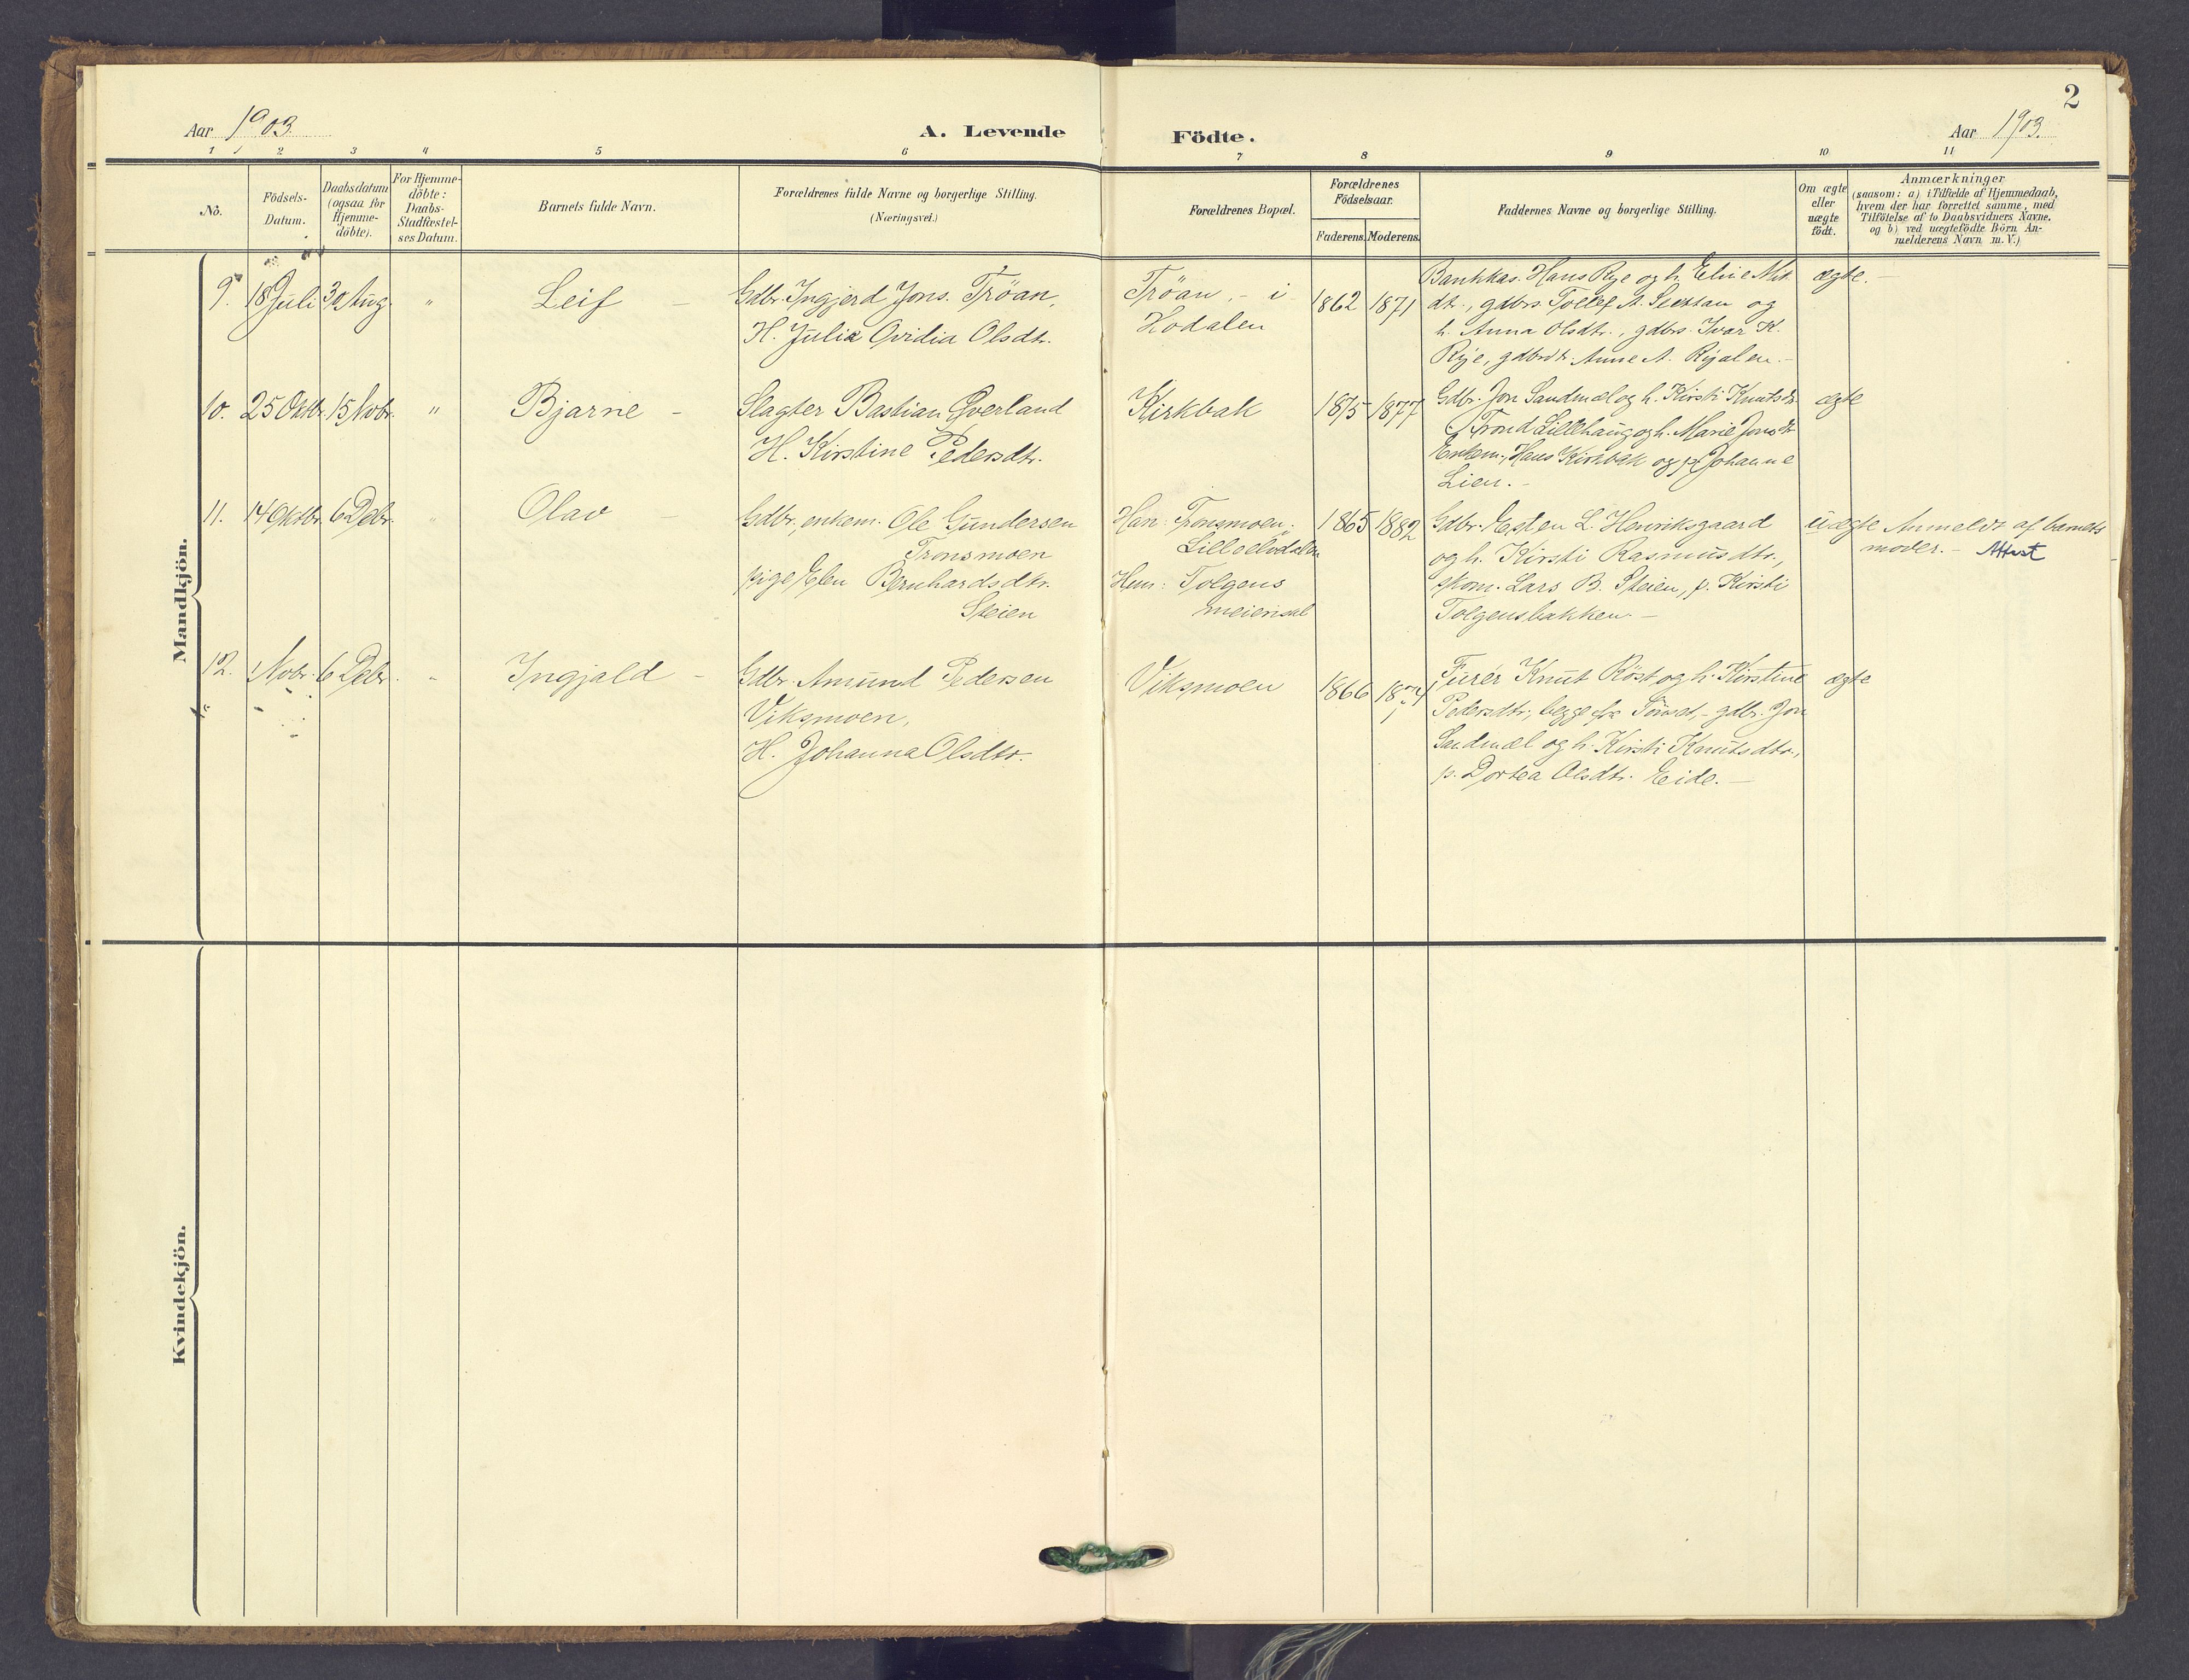 2
Aar 1903
A. Levende
Födte.
Aar 1903.
1 2 3 4 5 6 7 8 9 10 11
No.
Födsels-
Datum.
Daabsdatum
(ogsaa for
Hjemme-
döbte).
For Hjemme-
döbte:
Daabs-
Stadfæstel-
ses Datum.
Barnets fulde Navn.
Forældrenes fulde Navne og borgerlige Stilling.
(Næringsvei.)
Forældrenes Bopæl.
Forældrenes
Födselsaar.
Faderens. Moderens.
Faddernes Navne og borgerlige Stilling.
Om ægte
eller
uægte
födt.
Anmærkninger
(saasom: a) i Tilfælde af Hjemmedaab,
hvem der har forrettet samme, med
Tilföielse af to Daabsvidners Navne,
og b) ved uægtefödte Börn An-
melderens Navn m. V.)
Mandkjön.
9. 18 Juli 30 Aug. " Leif -
Gdbr. Ingjerd Jons. Tröan,
H. Julia Ovidia Olsdtr.
Tröan, - i
Hodalen
1862 1871
Bankkas. Hans Rye og h. Eline
dtr., gdbrs. Tollef A. og
h. Anna Olsdtr., gdbrs. Ivar K.
Rye, gdbrdtr. Anne A. Rijalen. -
ægte. -
10. 25 Oktbr. 15 Nobr. " Bjarne -
Slagter Bastian Øverland
H. Kirstine Pedersdtr.
Kirkbak
1875 1877
Gdbr. Jon Sandmæl og h. Kirsti Knutsdtr.
Trond Lillehaug og h. Marie Jonsdtr
Enkem. Hans Kirkbak og p. Johanne
Lien. -
ægte
11. 14 Oktbr. 6 Debr. " Olav -
Gdbr., enkem. Ole Gundersen
Tronsmoen
pige Elen Bernhardsdtr.
Steien
Han: Tronsmoen,
Lilleelvdalen
Hun: Tolgens
meierisal
1865 1882
Gdbr. Esten L. Henriksgaard
og h. Kirsti Rasmusdtr,
Lars B. Steien, p. Kirsti
Tolgensbakken. -
uægte
Anmeldt af barnets
moder. - Attest
12. Nobr. 6 Debr. " Ingjald -
Gdbr. Amund Pedersen
Viksmoen,
H. Johanna Olsdtr.
Viksmoen
1866 1874
Furér Knut Röst og h. Kirstine
Pedersdtr., begge fra Tönset, - gdbr. Jon
Sandmæl og h. Kirsti Knutsdtr.,
p. Dortea Olsdtr. Eide. -
ægte
Kvindekjön.